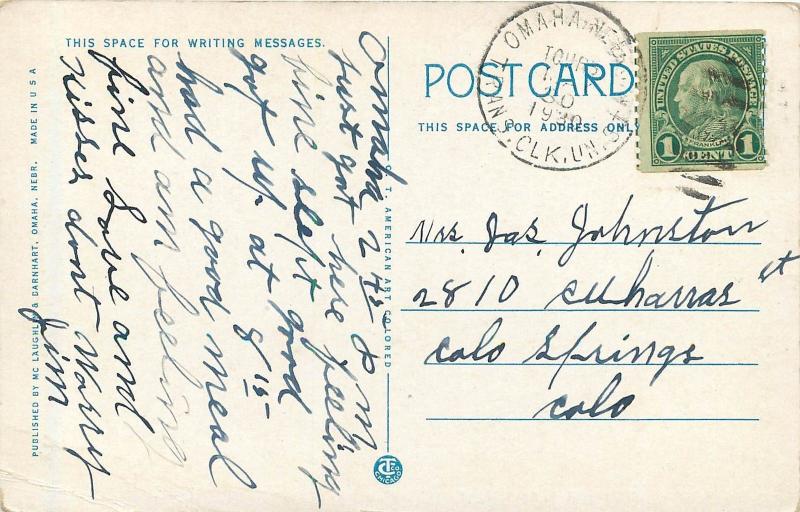 THIS SPACE FOR WRITING MESSAGES.
Omaha 2 45 P m
Just got here feeling
fine slept good
got up at 8 15
had a good meal
and am feeling
fine Love and
Kisses dont worry
Jim
PUBLISHED BY MC LAUGHLIN & BARNHART, OMAHA, NEBR. MADE IN U S A
C. T. AMERICAN ART COLORED
CT CO
CHICAGO
POST CARD
THIS SPACE FOR ADDRESS ONLY
OMAHA, NEB.
TOUR
30
1930
CLK. UN.
UNITED STATES POSTAGE
FRANKLIN
1 CENT 1
Mrs. Jas. Johnston
2810 Cucharras St
Colo Springs
Colo